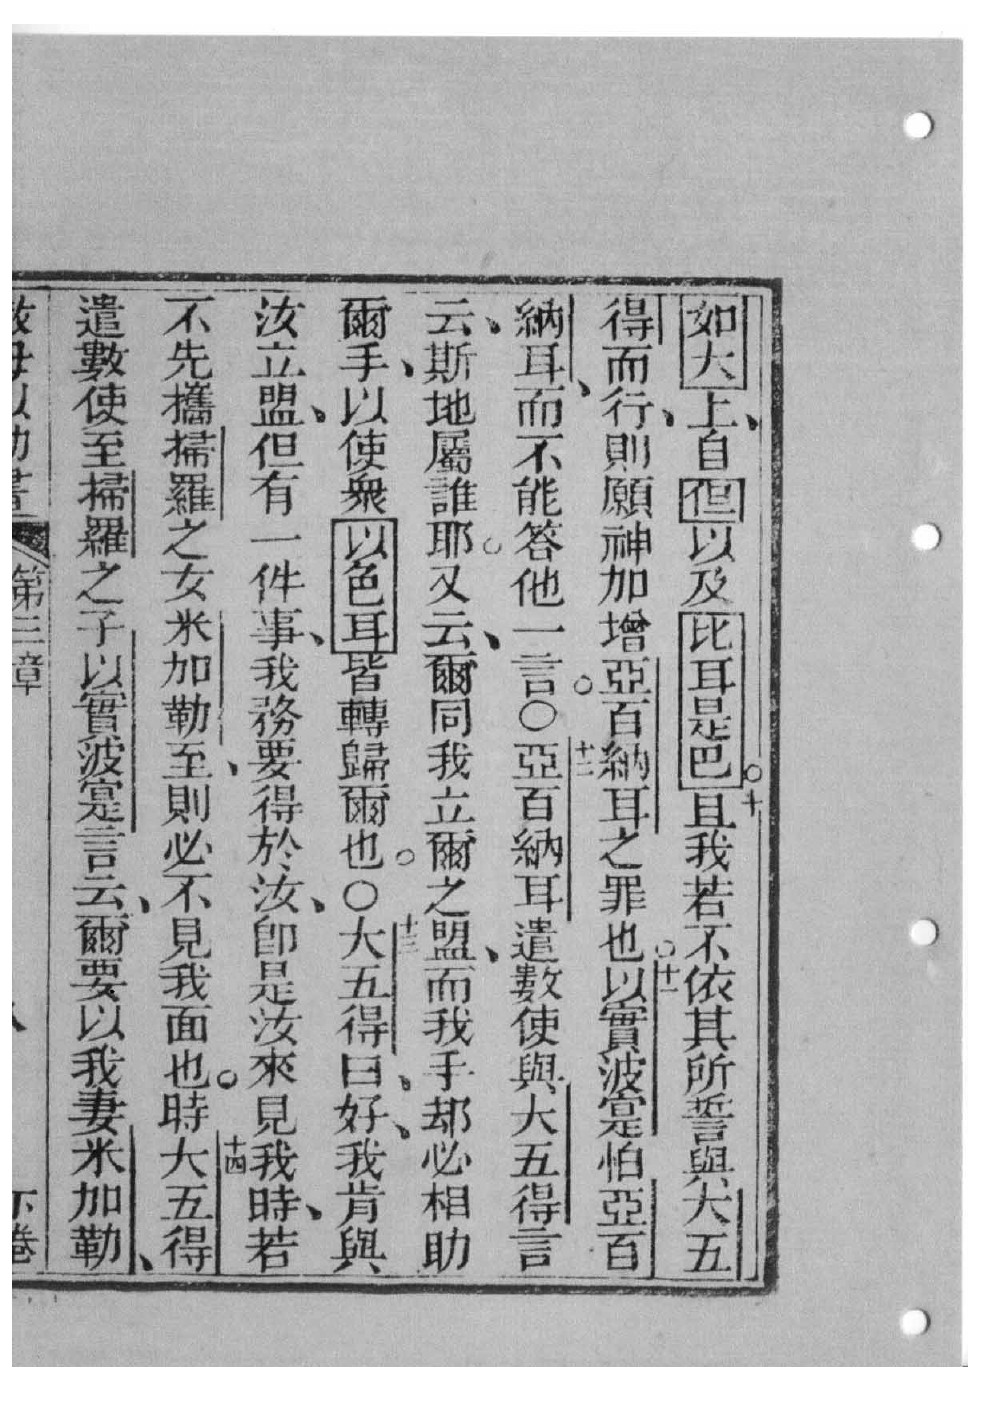 如大上、自但以及比耳是巴。十且我若不依其所誓與大五
得而行、則願神加增亞百納耳之罪也。十一以實波寔怕亞百
納耳、而不能答他一言。○十二亞百納耳遣數使與大五得言
云、斯地屬誰耶。又云、爾同我立爾之盟、而我手却必相助
爾手、以使衆以色耳皆轉歸爾也。○十三大五得曰、好、我肯與
汝立盟、但有一件事、我務要得於汝、卽是汝來見我時、若
不先攜掃羅之女米加勒至、則必不見我面也。十四時大五得
遣數使至掃羅之子以實波寔言云、爾要以我妻米加勒、
第三章
下卷